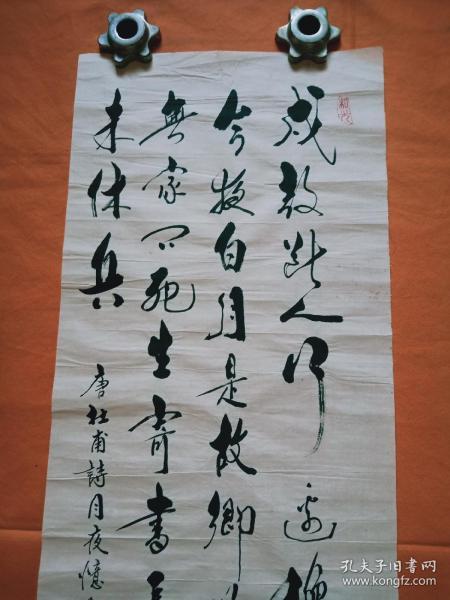 戍鼓断人行边秋
今夜白月是故鄉
無家问死生寄書長
未休兵
唐杜甫詩月夜憶
孔夫子旧书网
www.kongfz.com